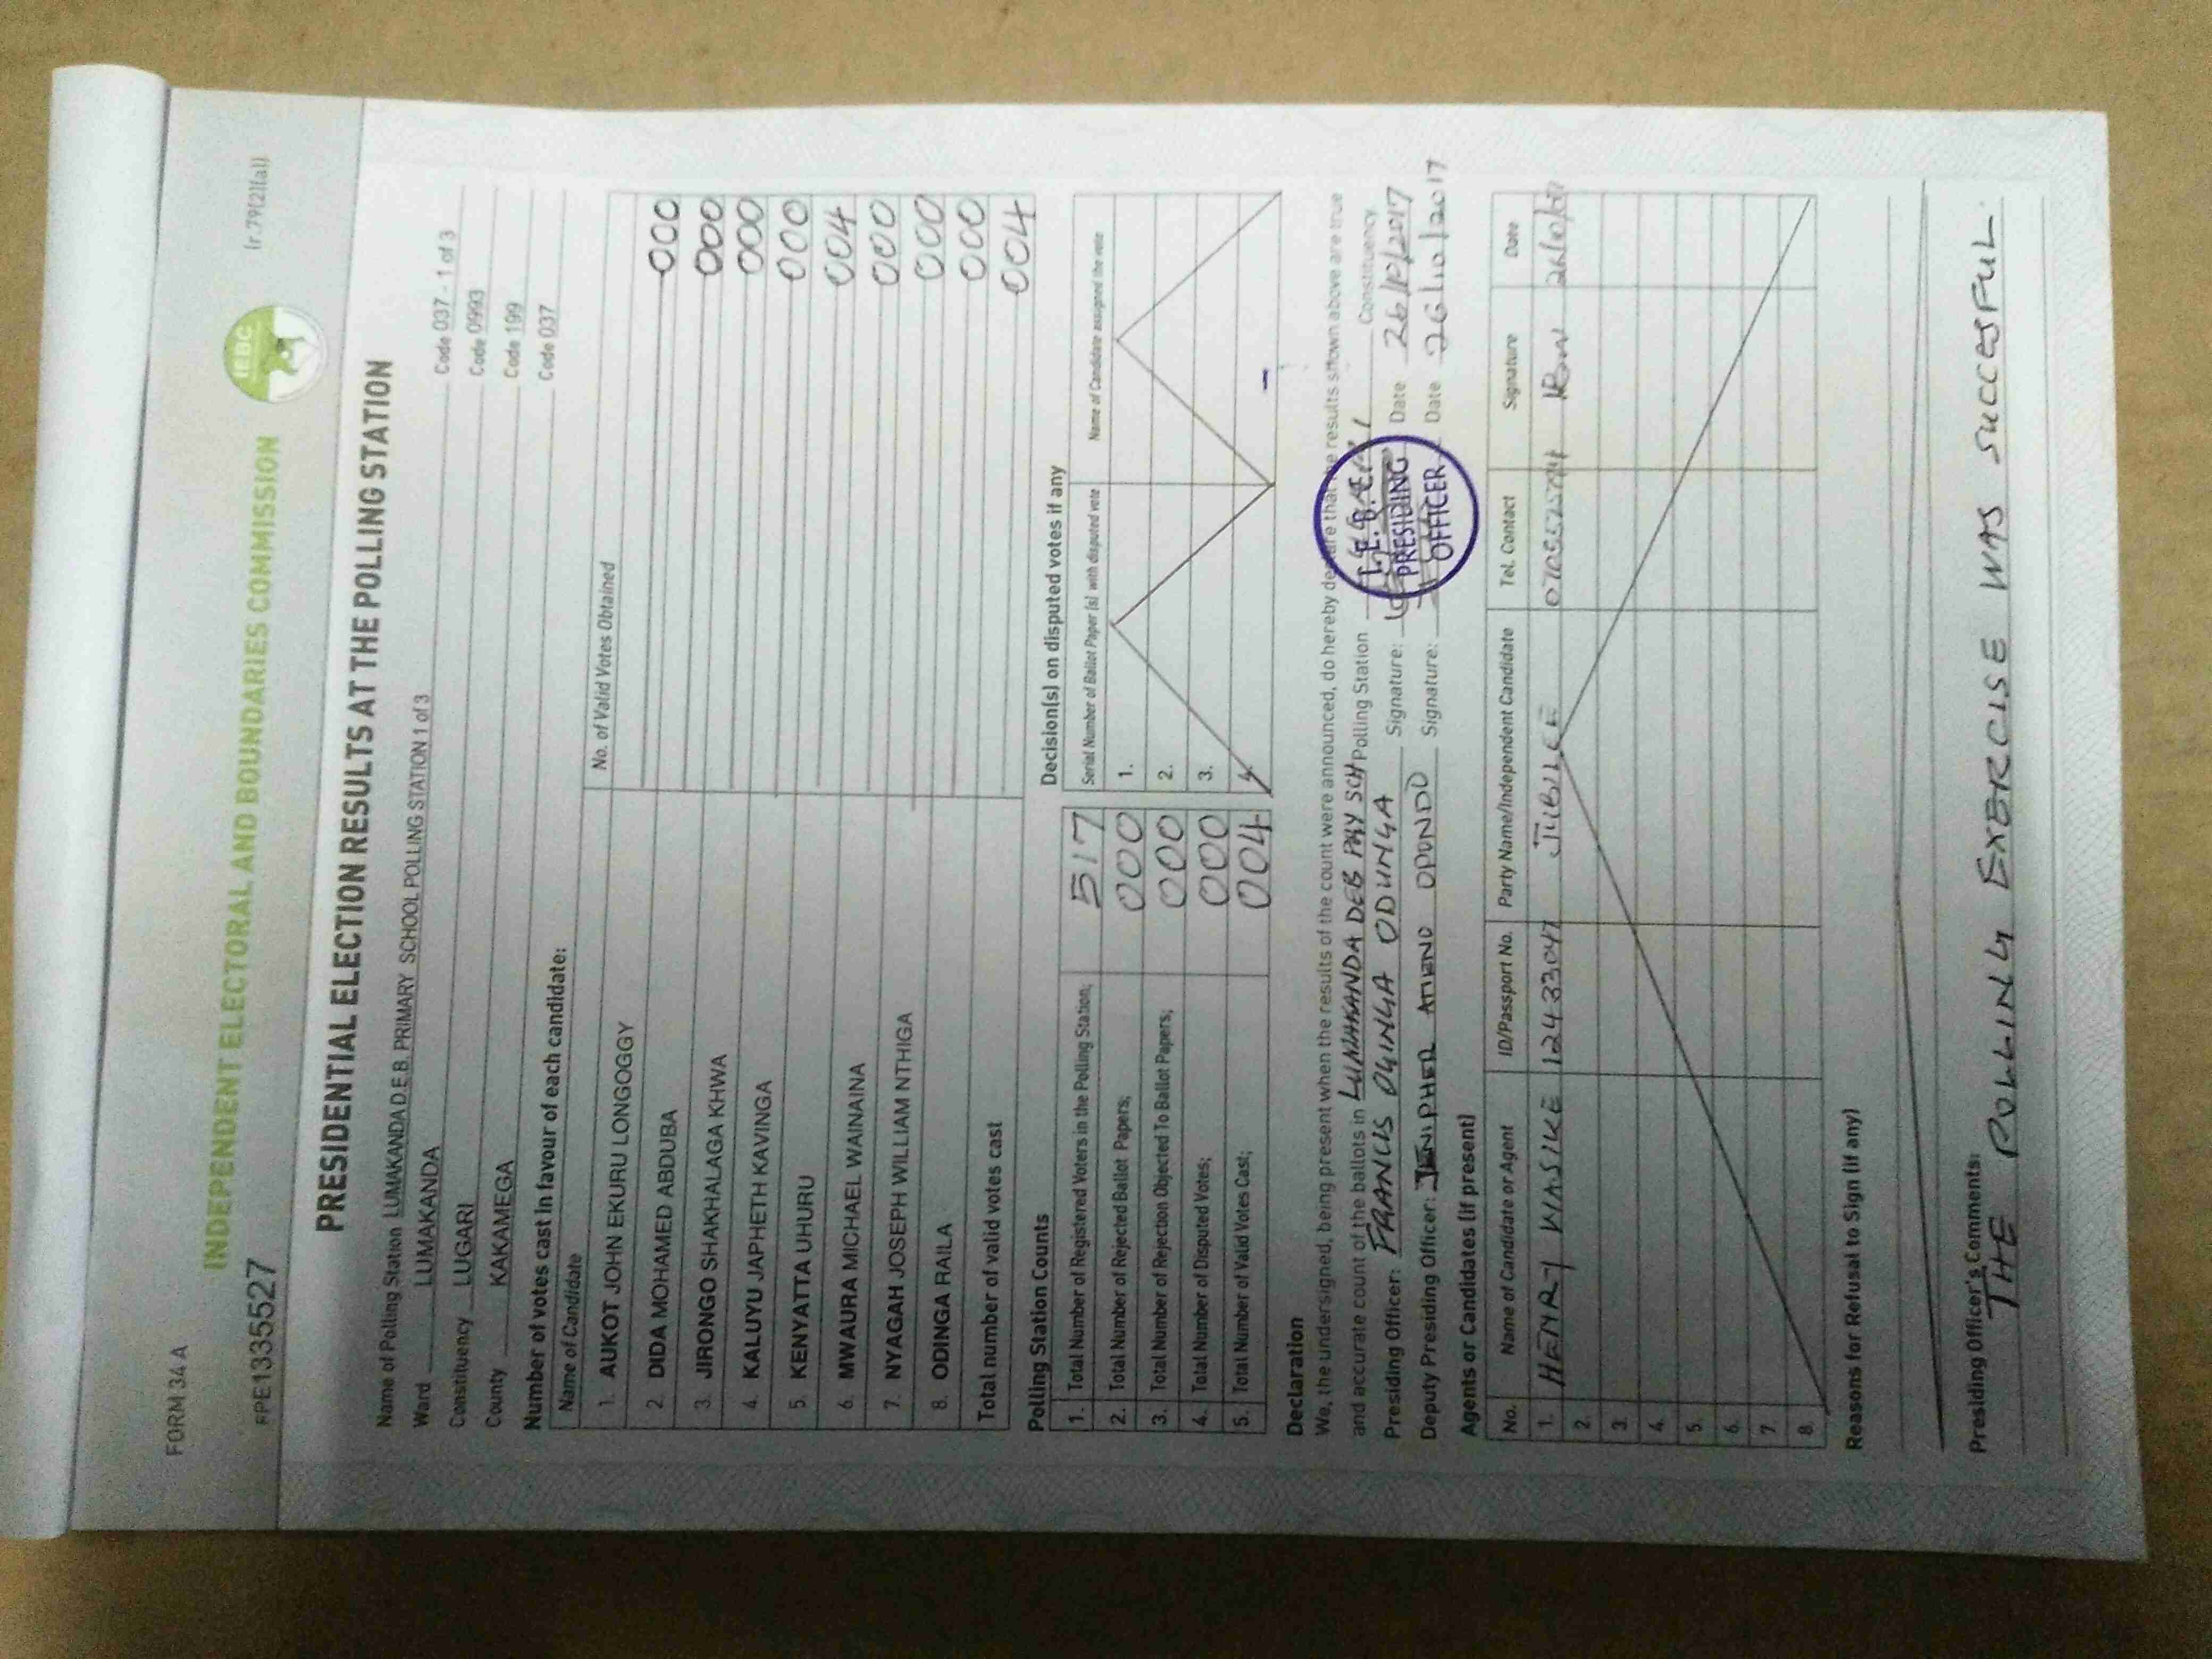 FORM 34 A
INDEPENDENT ELECTORAL AND BOUNDARIES COMMISSION
IEBC
(r.79(2)(a))
PPE1335527
PRESIDENTIAL ELECTION RESULTS AT THE POLLING STATION
Name of Polling Station LUMAKANDA D.E.B. PRIMARY SCHOOL POLLING STATION 1 of 3 Code 037 - 1 of 3
Ward LUMAKANDA Code 0993
Constituency LUGARI Code 199
County KAKAMEGA Code 037
Number of votes cast in favour of each candidate:
Name of Candidate No. of Valid Votes Obtained
1. AUKOT JOHN EKURU LONGOGGY 000
2. DIDA MOHAMED ABDUBA 000
3. JIRONGO SHAKHALAGA KHWA 000
4. KALUYU JAPHETH KAVINGA 000
5. KENYATTA UHURU 004
6. MWAURA MICHAEL WAINAINA 000
7. NYAGAH JOSEPH WILLIAM NTHIGA 000
8. ODINGA RAILA 000
Total number of valid votes cast 004
Polling Station Counts
1. Total Number of Registered Voters in the Polling Station; 517
2. Total Number of Rejected Ballot Papers; 000
3. Total Number of Rejection Objected To Ballot Papers; 000
4. Total Number of Disputed Votes; 000
5. Total Number of Valid Votes Cast; 004
Decision(s) on disputed votes if any
Serial Number of Ballot Paper (s) with disputed vote Name of Candidate assigned the vote
1.
2.
3.
4.
Declaration
We, the undersigned, being present when the results of the count were announced, do hereby declare that the results shown above are true
and accurate count of the ballots in LUMAKANDA DEB PRY SCH Polling Station Constituency
Presiding Officer: FRANCIS OGINGA ODUNGA Signature: Date 26/10/2017
Deputy Presiding Officer: JENIPHER ATIENO OPONDO Signature: Date 26/10/2017
I.E.B.C.
PRESIDING
OFFICER
Agents or Candidates (if present)
No. Name of Candidate or Agent ID/Passport No. Party Name/Independent Candidate Tel. Contact Signature Date
1. HENRY WASIKE 12433047 JUBILEE 26/10/17
2.
3.
4.
5.
6.
7.
8.
Reasons for Refusal to Sign (if any)
Presiding Officer's Comments:
THE POLLING EXERCISE WAS SUCCESFUL.